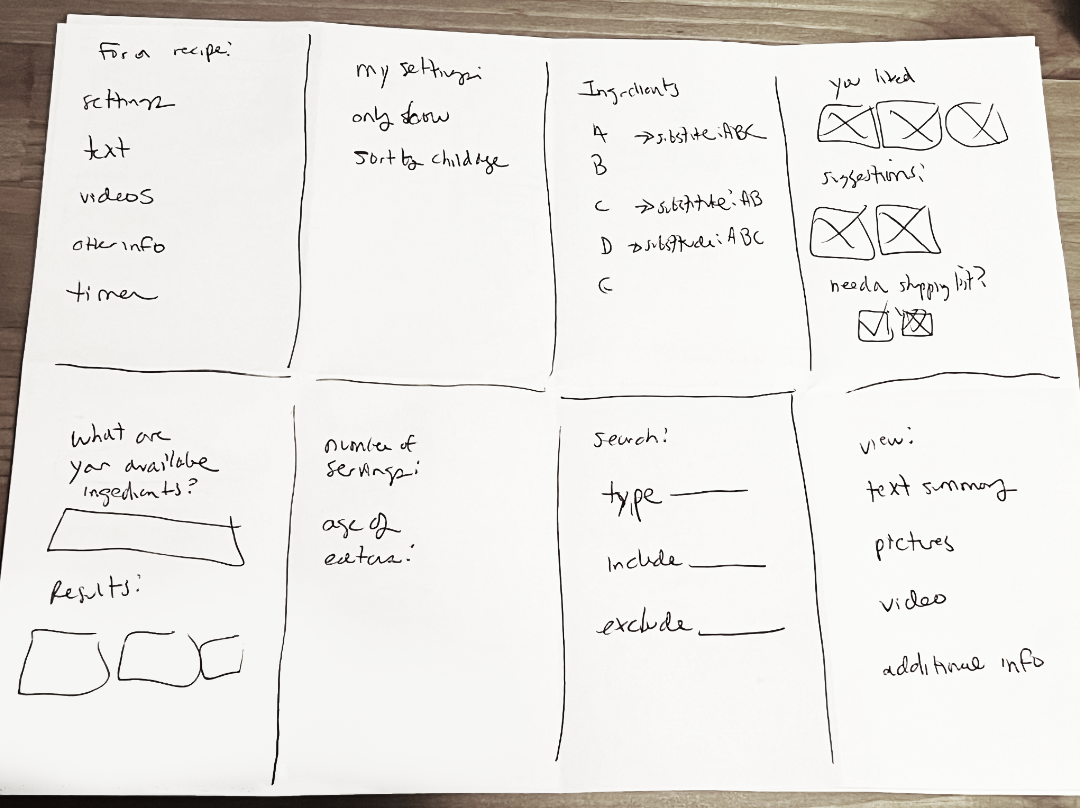 For a recipe:
settings
text
videos
other info
timer
my settings:
only show
sort by child age
Ingredients
A → substitute: ABC
B
C → substitute: AB
D → substitute: ABC
E
you liked
suggestions:
need a shopping list?
What are
your available
ingredients?
Results:
number of
servings:
age of
eaters:
search:
type
include
exclude
view:
text summary
pictures
video
additional info